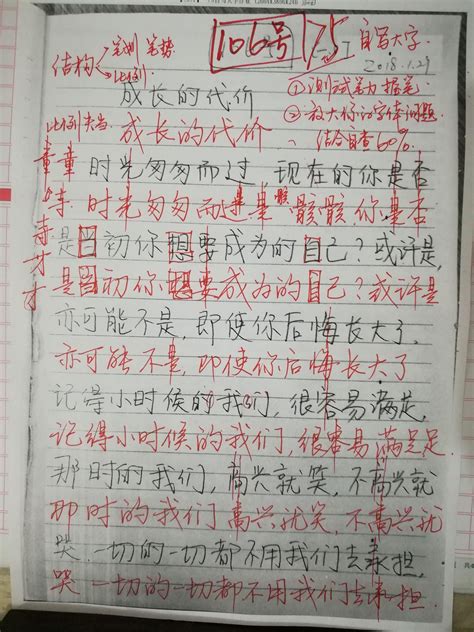 笔划 笔势
结构 比例
106号 75
自写大字
2018.1.29
①测试笔力握笔
②放大你的字体问题
结合自查60%
成长的代价
比例失当 成长的代价
童童 时光匆匆而过,现在的你是否
时光匆匆而 是 骸骸 你是否
是当初你想要成为的自己?或许是,
是当初你想要成为的自己?或许是
亦可能不是,即使你后悔长大了
亦可能不是,即使你后悔长大了
记得小时候的我们,很容易满足,
记得小时候的我们,很容易满足足
那时的我们,高兴就笑,不高兴就
那时的我们高兴就笑,不高兴就
哭,一切的一切都不用我们去承担,
哭 一切的一切都不用我们去承担.